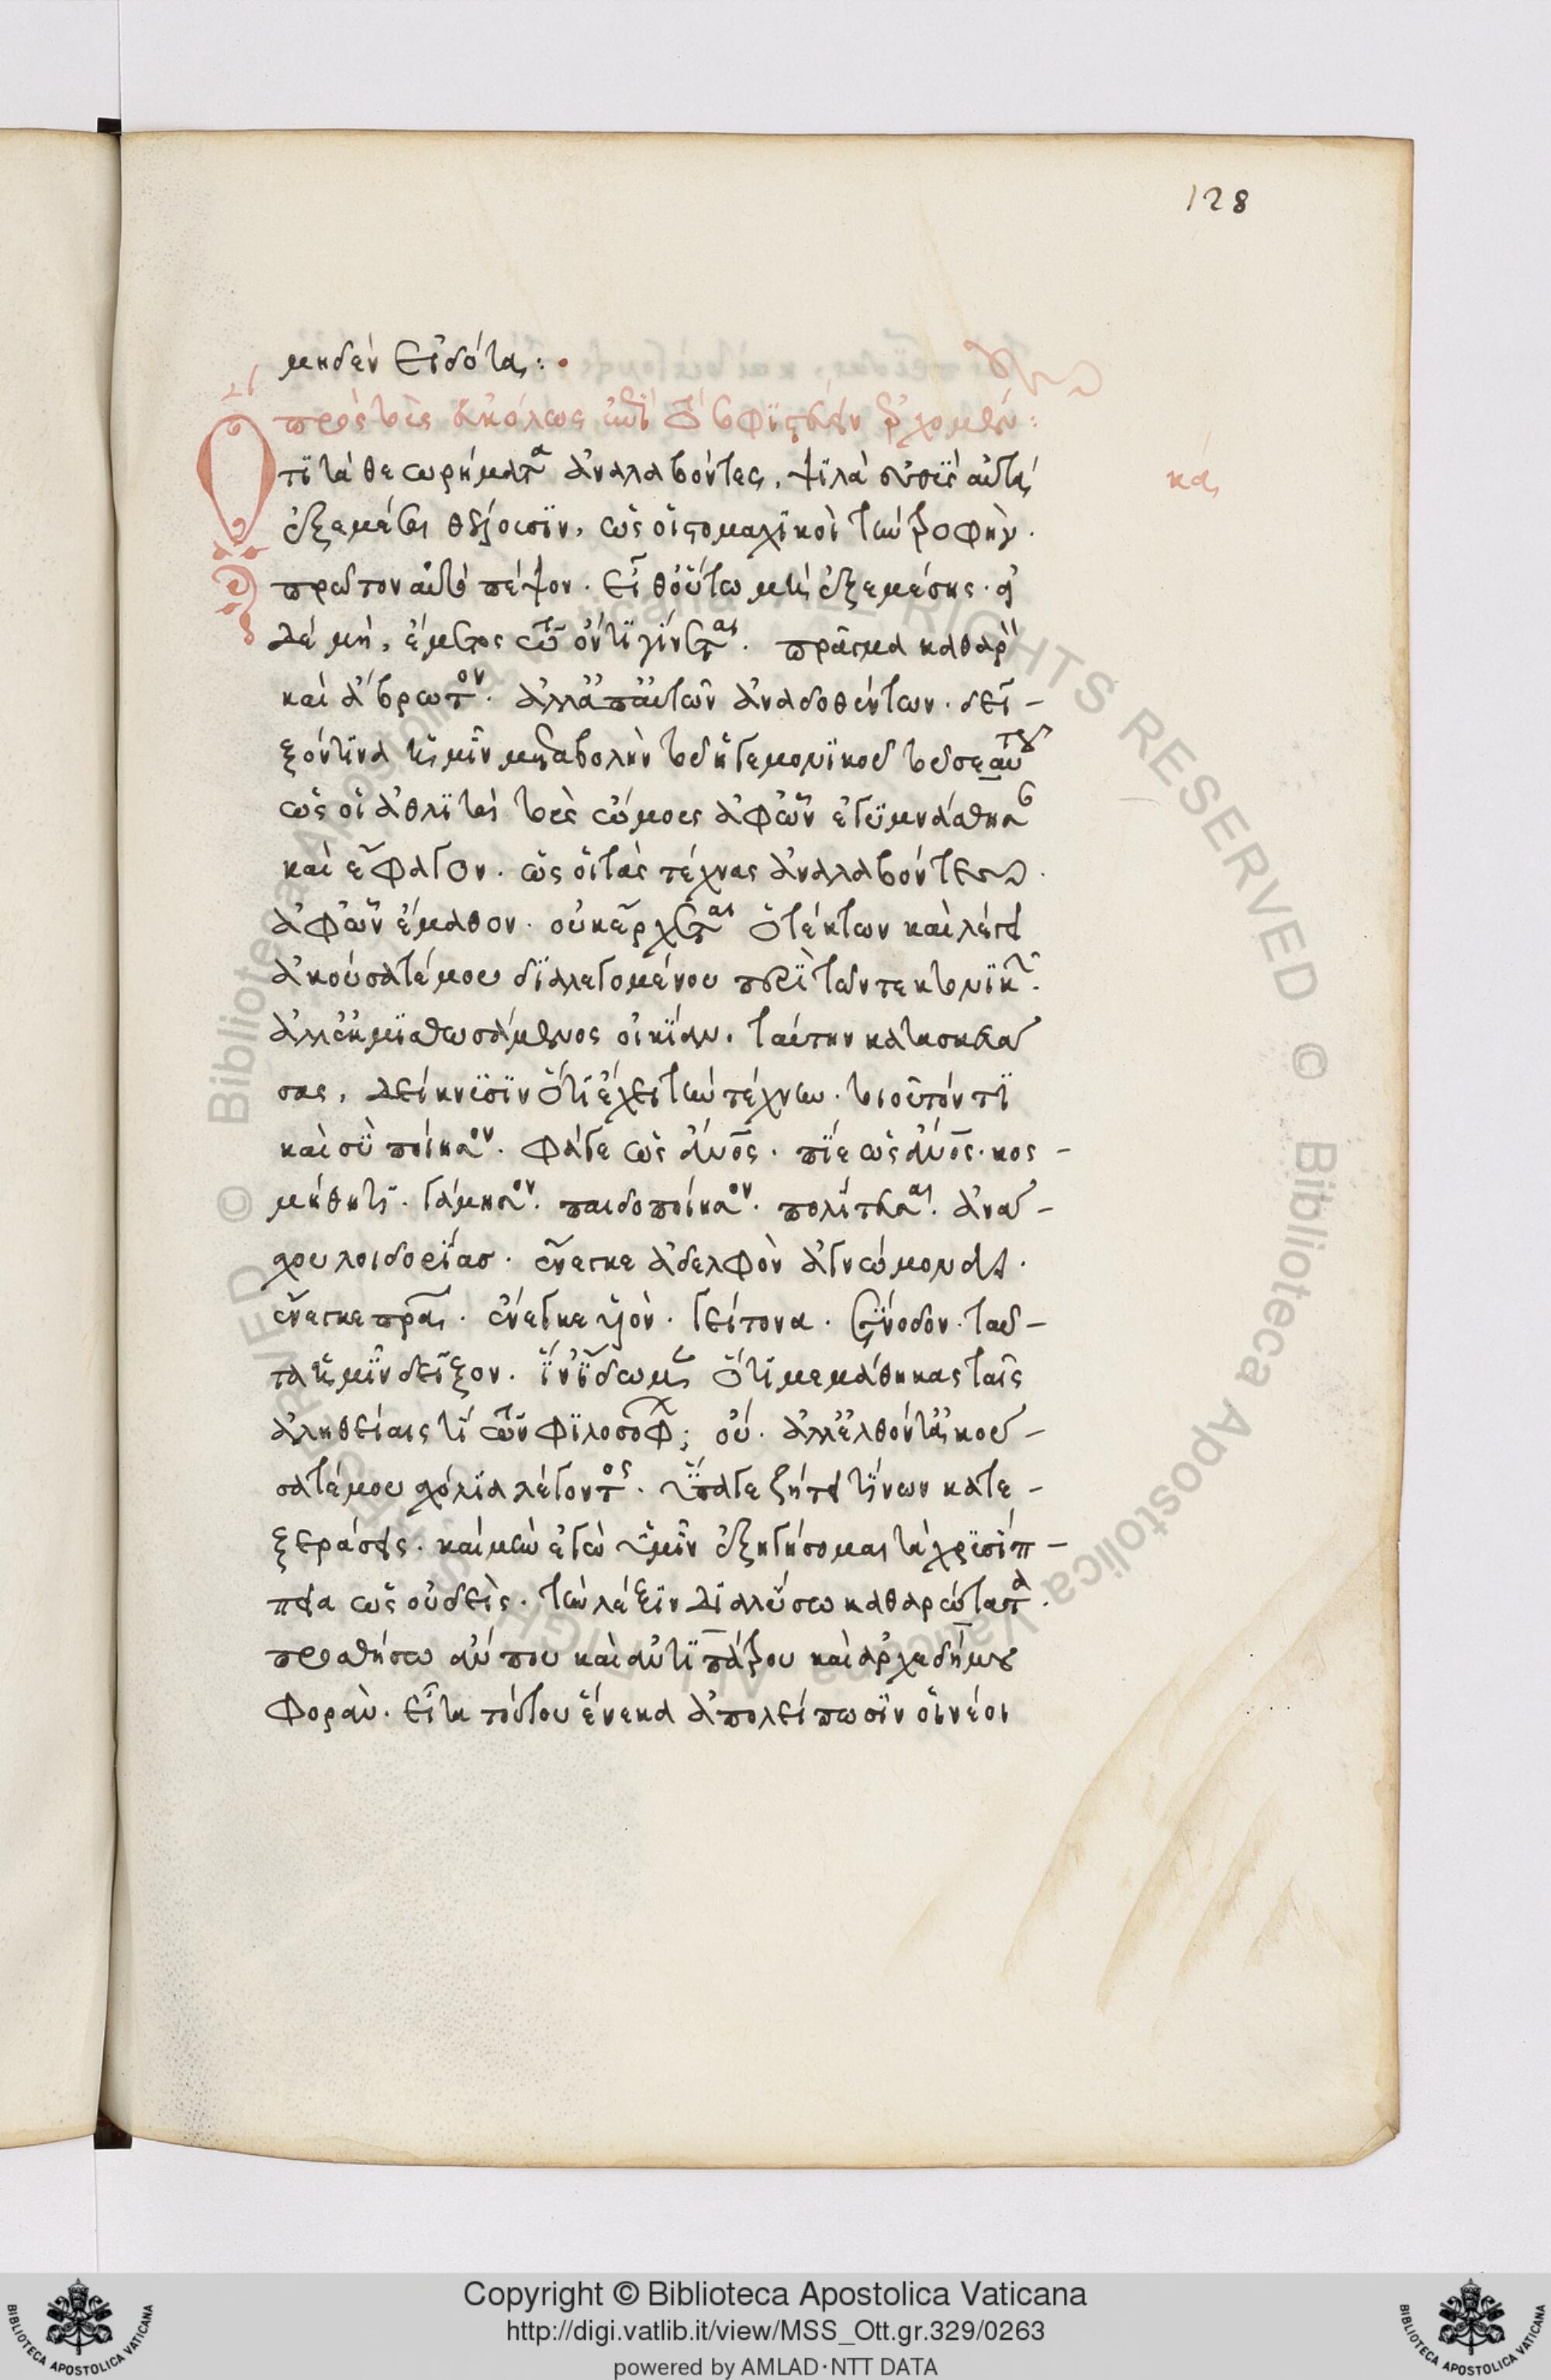 128
μηδὲν εἰδότα:
πρὸς τοὺς εὐκόλως ἐπὶ τὸ σοφιστεύειν ἐρχομένους:
κα
Ὅτι τὰ θεωρήματα ἀναλαβόντες, ψιλὰ εὐθὺς αὐτὰ
ἐξεμέσαι θέλουσιν, ὡς οἱ στομαχικοὶ τὴν τροφήν.
πρῶτον αὐτὸ πέψον. εἶθ' οὕτω μὴ ἐξεμέσῃς. εἰ
δὲ μή, ἔμετος τῷ ὄντι γίνεται. πρᾶγμα καθαρὸν
καὶ ἄβρωτον. ἀλλ' ἀπ' αὐτῶν ἀναδοθέντων. δεῖ-
ξόν τινα ἡμῖν μεταβολὴν τοῦ ἡγεμονικοῦ τοῦ σεαυτοῦ
ὡς οἱ ἀθληταὶ τοὺς ὤμους ἀφ' ὧν ἐγυμνάσθησαν
καὶ ἔφαγον. ὡς οἱ τὰς τέχνας ἀναλαβόντες.
ἀφ' ὧν ἔμαθον. οὐκ ἔρχεται ὁ τέκτων καὶ λέγει
ἀκούσατέ μου διαλεγομένου περὶ τῶν τεκτονικῶν.
ἀλλ' ἐκμισθωσάμενος οἰκίαν. ταύτην κατασκευά
σας, δείκνυσιν ὅτι ἔχει τὴν τέχνην. τοιοῦτόν τι
καὶ σὺ ποίησον. φάγε ὡς ἄνος. πίε ὡς ἄνος. κοσ-
μήθητι. γάμησον. παιδοποίησον. πολίτευσαι. ἀνάσ-
χου λοιδορίας. ἔνεγκε ἀδελφὸν ἀγνώμονα.
ἔνεγκε πρα. ἔνεγκε υἱόν. γείτονα. σύνοδον. ταῦ-
τα ἡμῖν δεῖξον. ἵν' ἴδωμεν ὅτι μεμάθηκας ταῖς
ἀληθείαις τι τῶν φιλοσόφων; οὔ. ἀλλ' ἐλθόντες ἀκού-
σατέ μου σχόλια λέγοντος. ὕπαγε ζήτει τίνων κατε-
ξεράσεις. καὶ μὴν ἐγὼ ὑμῖν ἐξηγήσομαι τὰ χρυσίπ-
πεια ὡς οὐδείς. τὴν λέξιν διαλύσω καθαρώτατα.
προσθήσω ἄν που καὶ ἀντιπάτρου καὶ ἀρχεδήμου
φοράν. εἶτα τούτου ἕνεκα ἀπολείπωσιν οἱ νέοι
Copyright © Biblioteca Apostolica Vaticana
http://digi.vatlib.it/view/MSS_Ott.gr.329/0263
powered by AMLAD·NTT DATA